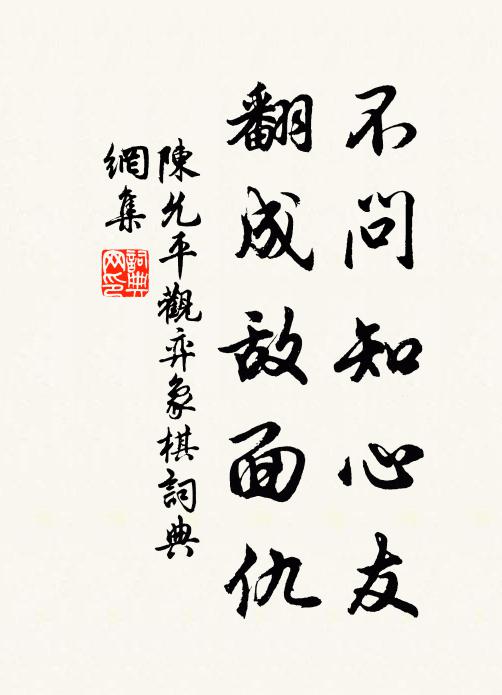 不问知心友
翻成敌面仇
陳允平觀弈象棋詞典
網集
詞典
网印